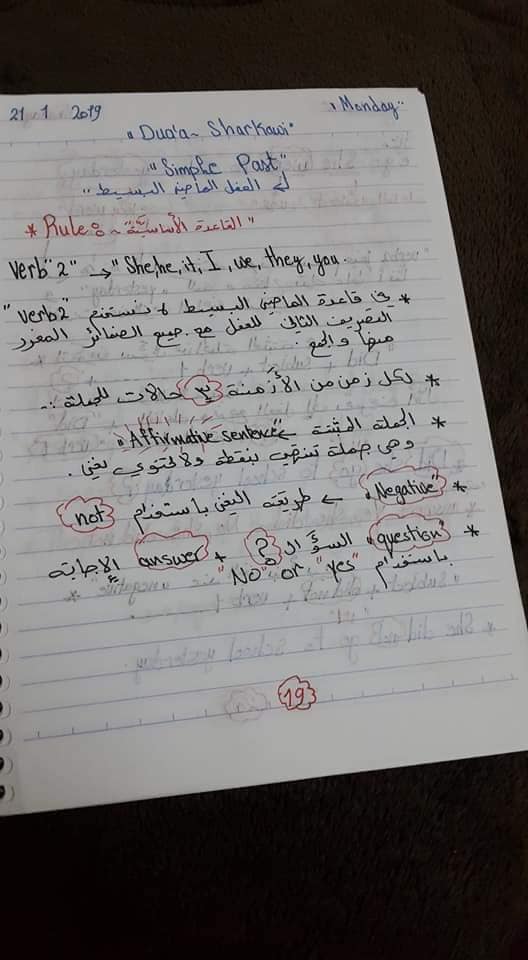 21 1 2019 "Monday"
"Duo'a~ Sharkawi"
"Simple Past"
لـ الفعل الماضي البسيط "
* Rule: القاعدة الأساسية "
Verb "2" → "She, he, it, I, we, they, you.
* في قاعدة الماضي البسيط نستخدم "verb 2"
التصريف الثاني للفعل مع جميع الضمائر المفرد
منها والجمع.
* لكل زمن من الأزمنة 3 حالات للجملة :-
* الجملة المثبتة ← "Affirmative sentence"
وهي جملة تنتهي بنقطة ولا تحتوي نفي.
* "Negative" ← طريقة النفي باستخدام not
* "question" السؤال ? + answer الإجابة
باستخدام "yes" or "No"
She did not go to school yesterday
19